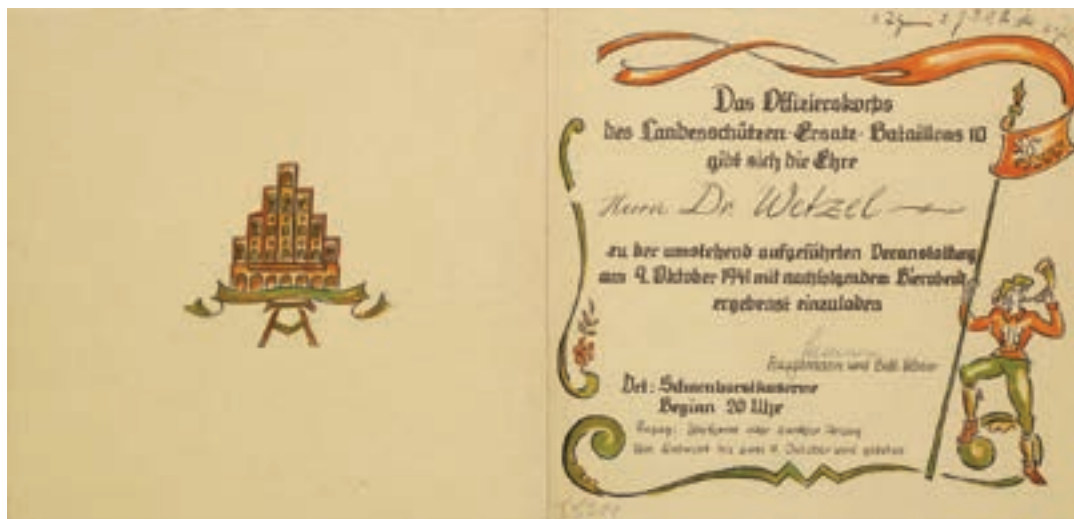 Das Offizierskorps
des Landesschützen-Ersatz-Bataillons 10
gibt sich die Ehre
Herrn Dr. Wetzel
zu der umstehend aufgeführten Veranstaltung
am 9. Oktober 1941 mit nachfolgendem Bierabend
ergebenst einzuladen
Hauptmann und
Ort: Scharnhorstkaserne
Beginn 20 Uhr
Anzug: Uniform oder dunkler Anzug
Um Antwort bis zum Oktober wird gebeten